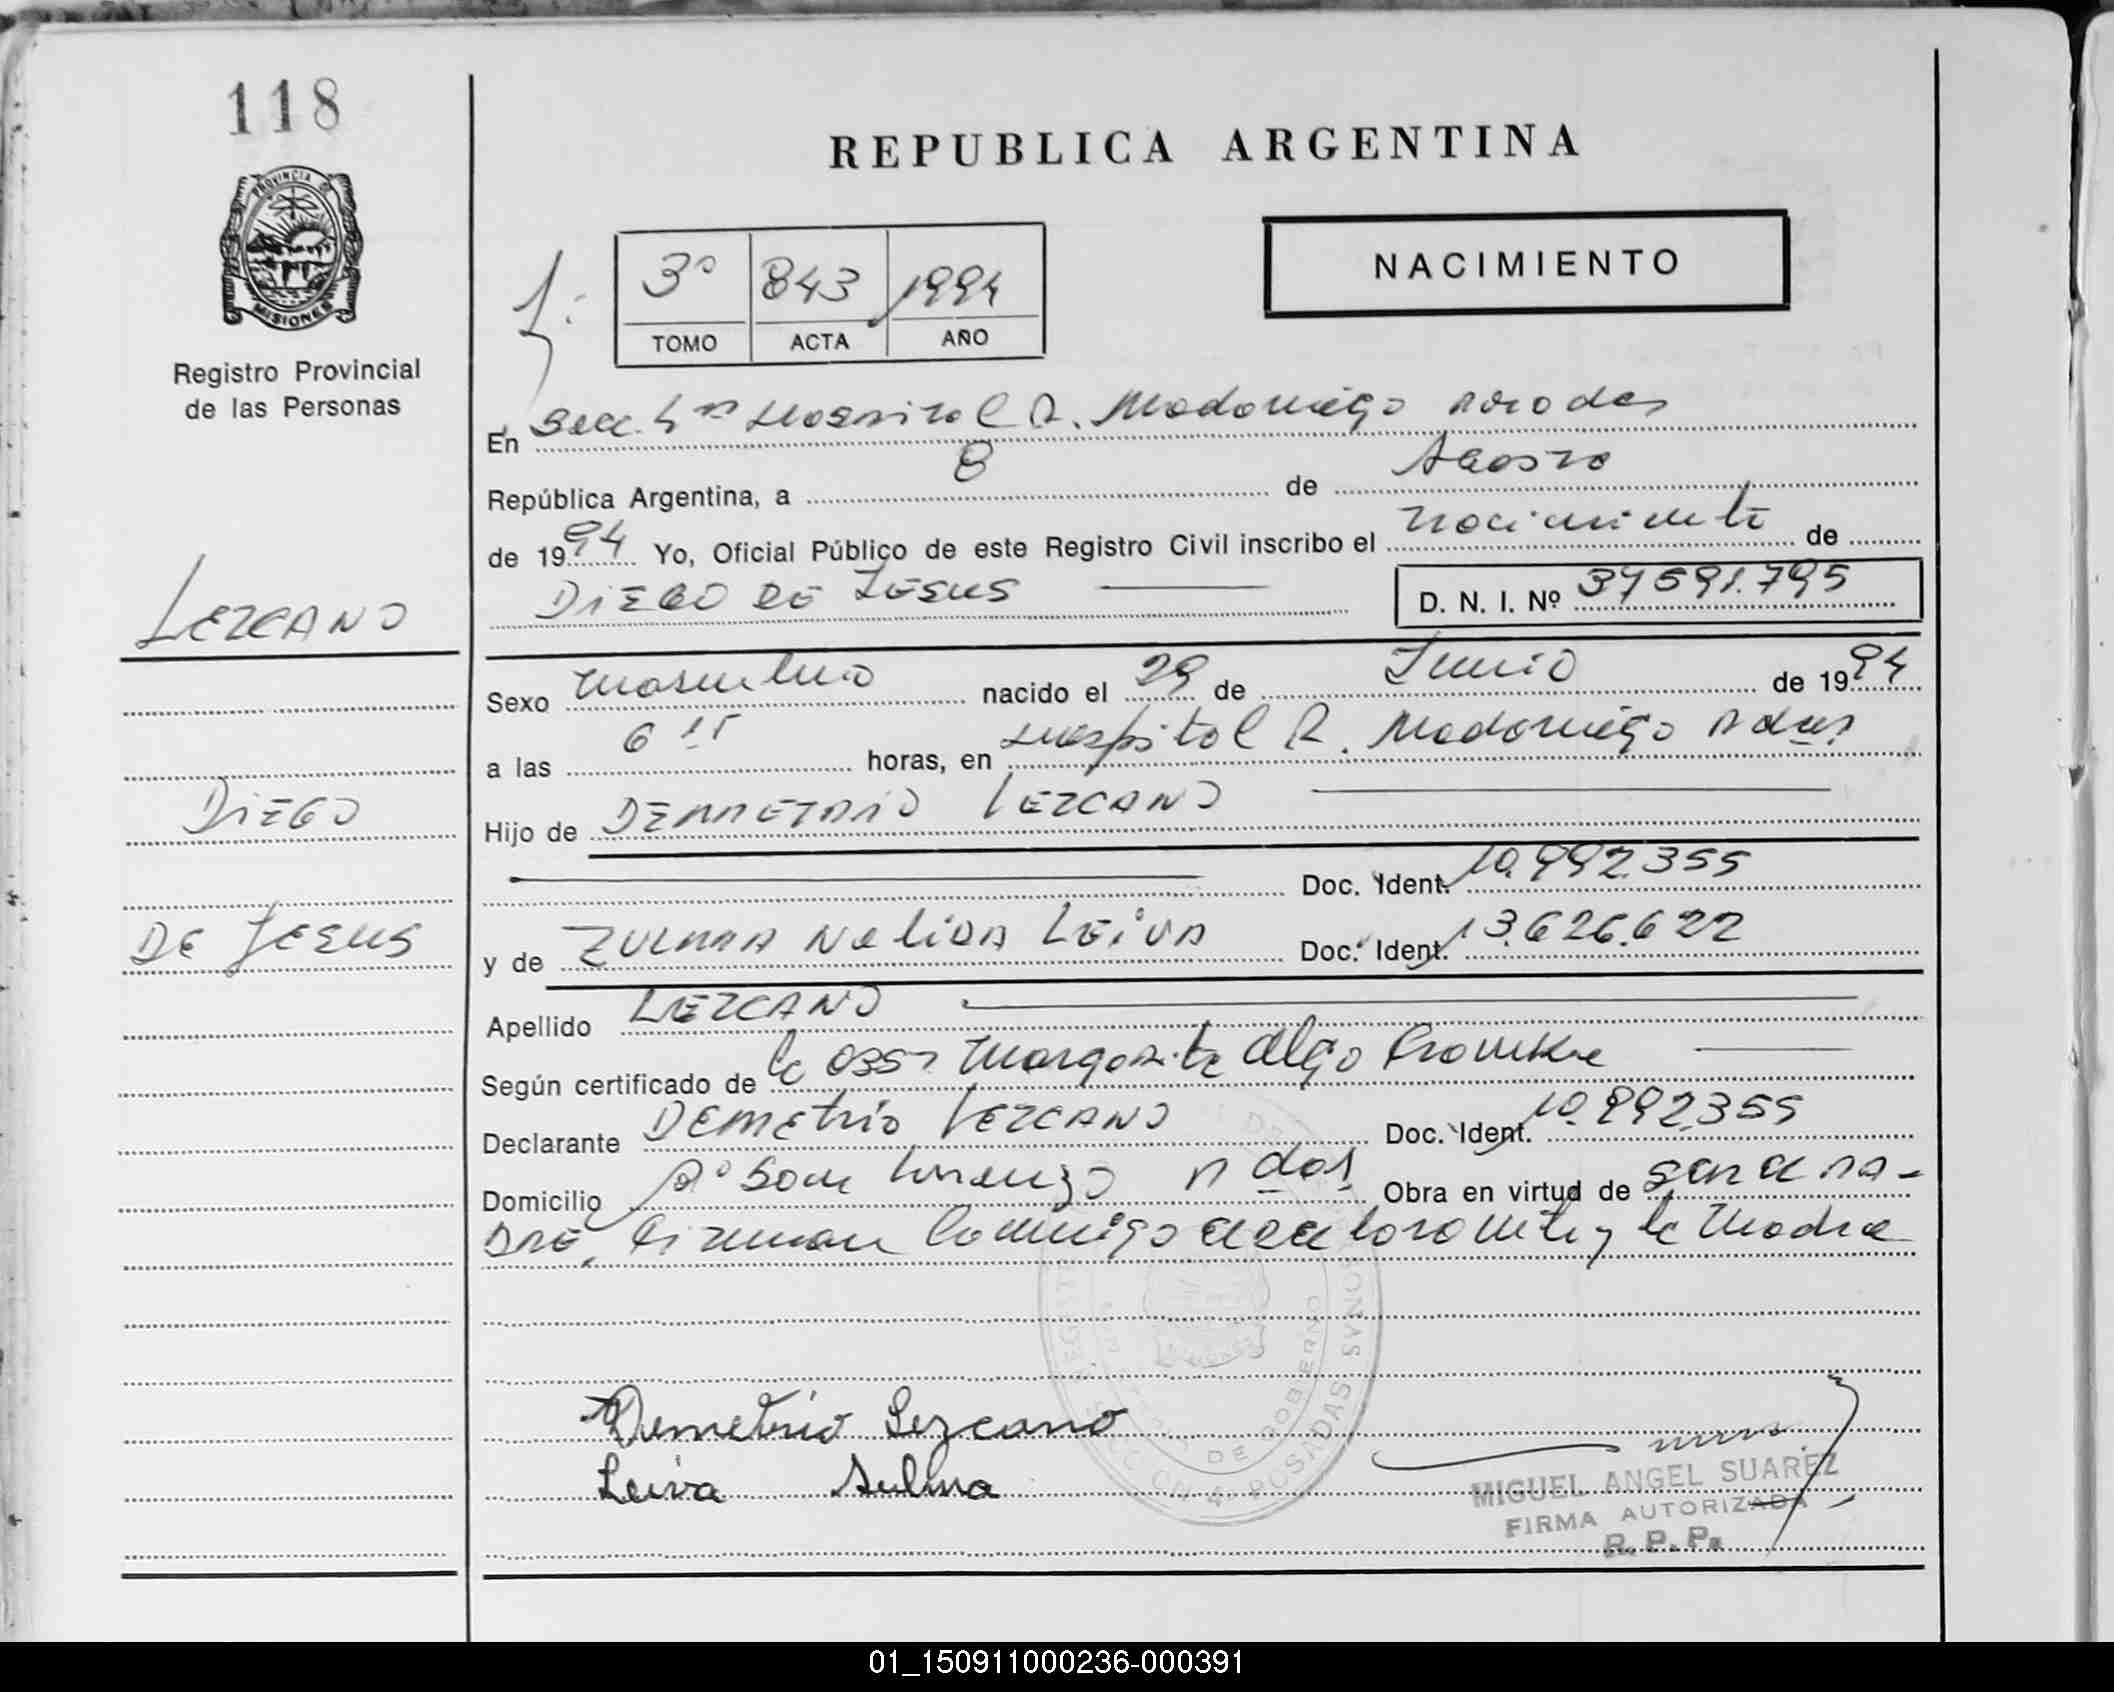 118
REPUBLICA ARGENTINA
PROVINCIA DE
MISIONES
Registro Provincial
de las Personas
3º 843 1994
TOMO ACTA AÑO
NACIMIENTO
En Secc. 4ta Hospital R. Madariaga Posadas
República Argentina, a 8 de Agosto
de 1994 Yo, Oficial Público de este Registro Civil inscribo el nacimiento de
DIEGO DE JESUS D. N. I. Nº 37591.795
LEZCANO
Sexo masculino nacido el 29 de Junio de 1994
a las 6 15 horas, en Hospital R. Madariaga Pdas
DIEGO
Hijo de DEMETRIO LEZCANO
Doc. Ident. 10.992.355
DE JESUS
y de ZULMA NELIDA LEIVA Doc. Ident. 13.626.622
Apellido LEZCANO
Según certificado de la Obst Margarita Olga
Declarante DEMETRIO LEZCANO Doc. Ident. 10.992.355
Domicilio Bº San Lorenzo Pdas Obra en virtud de ser el PA-
DRE, firman conmigo el declarante y la Madre
Demetrio Lezcano
Leiva Sulma
DE GOBIERNO
SECCION 4a POSADAS
MIGUEL ANGEL SUAREZ
FIRMA AUTORIZADA
R. P. P.
01_150911000236-000391